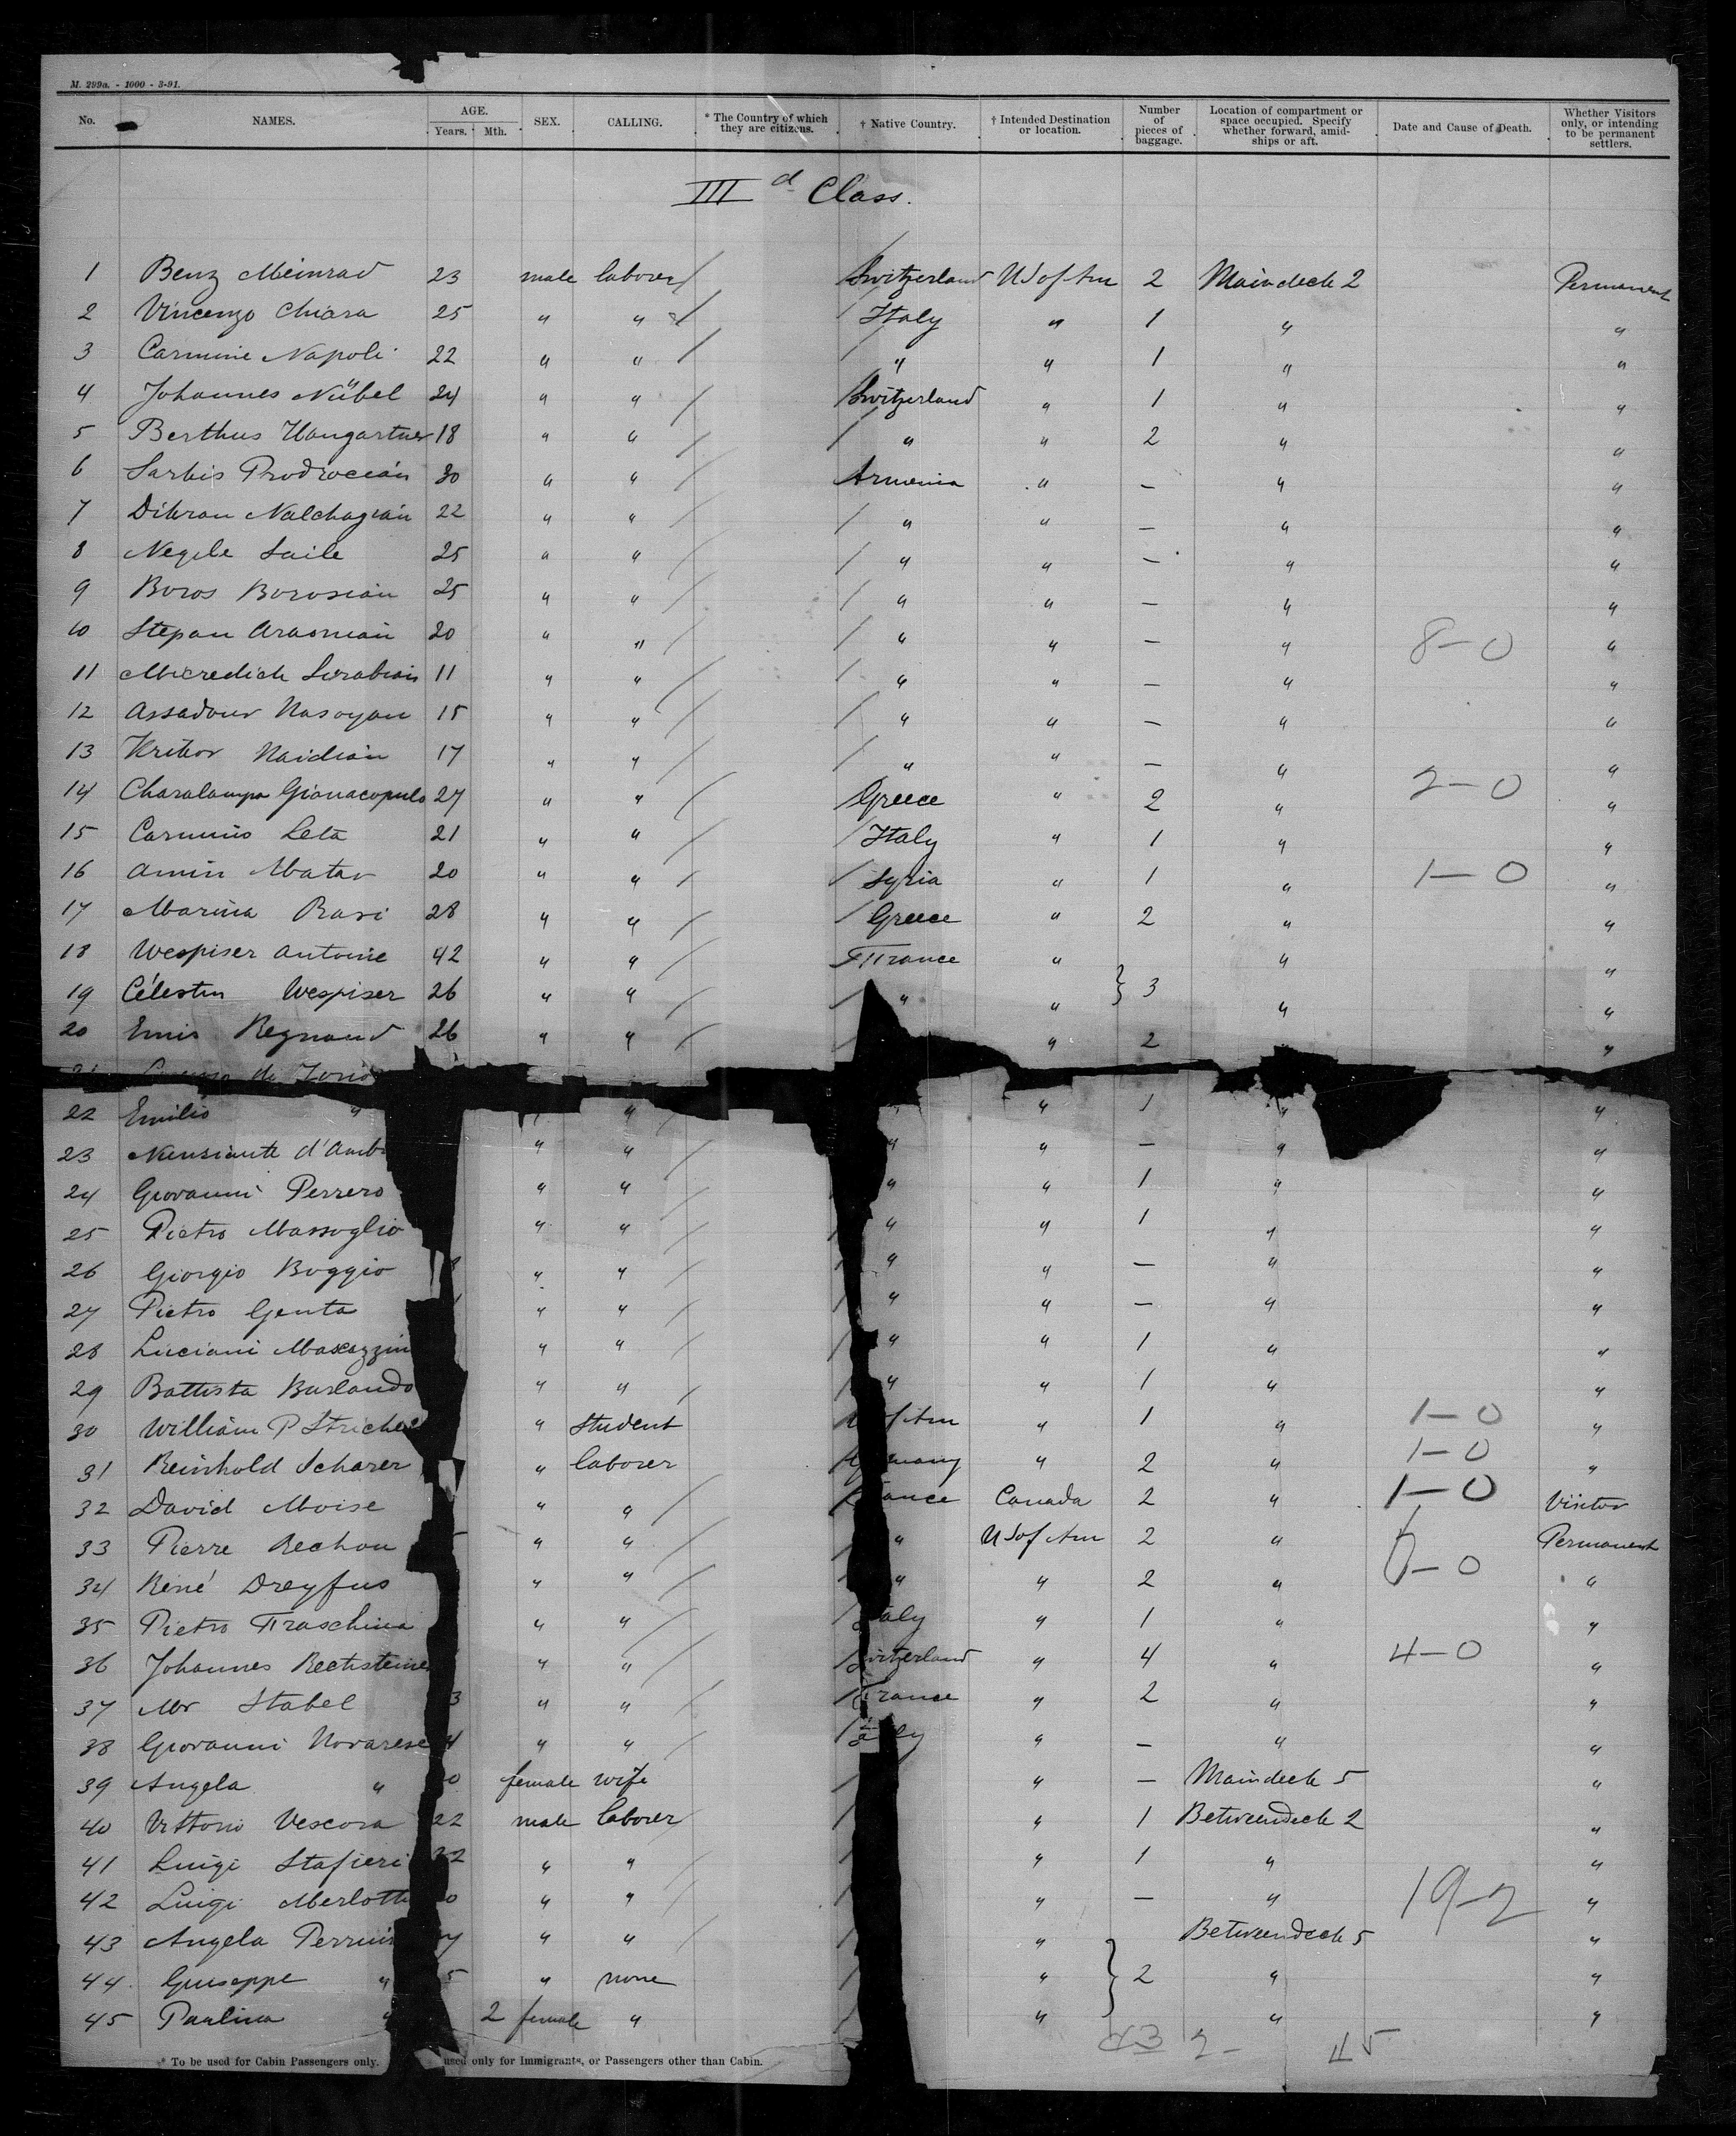 M. 299a. - 1000 - 3-91.
No. NAMES. AGE. Years. Mth. SEX. CALLING. * The Country of which they are citizens. † Native Country. † Intended Destination or location. Number of pieces of baggage. Location of compartment or space occupied. Specify whether forward, amidships or aft. Date and Cause of Death. Whether Visitors only, or intending to be permanent settlers.
IIId Class.
1 Benz Meinrad 23 male laborer Switzerland US of Am 2 Maindeck 2 Permanent
2 Vincenzo Chiara 25 " " Italy " 1 " "
3 Carmine Napoli 22 " " " " 1 " "
4 Johannes Nübel 24 " " Switzerland " 1 " "
5 Berthus Hangartner 18 " " " " 2 " "
6 Sarkis 30 " " Armenia " — " "
7 Dikran Nalchagian 22 " " " " — " "
8 Negele Saile 25 " " " " — " "
9 Boros Borosian 25 " " " " — " "
10 Stepan 20 " " " " — " 8-0 "
11 11 " " " " — " "
12 Assadour Nasoyan 15 " " " " — " "
13 Krikor Naidian 17 " " " " — " "
14 Charalampo Gianacopulo 27 " " Greece " 2 " 2-0 "
15 Carmino Leta 21 " " Italy " 1 " "
16 Amin Matar 20 " " Syria " 1 " 1-0 "
17 Marina 28 " " Greece " 2 " "
18 Wespiser Antoine 42 " " France " " "
19 Célestin Wespiser 26 " " " " } 3 " "
20 Regnaud 26 " " " 2 "
21 de
22 Emilio " " " 1 " "
23 d'Amb " " " " — " "
24 Giovanni Perrero " " " " 1 " "
25 Pietro Massoglio " " " " 1 " "
26 Giorgio Boggio " " " " — " "
27 Pietro Genta " " " " — " "
28 Luciani " " " " 1 " "
29 Battista Burlando " " " " 1 " "
30 William P Striche " student of Am " 1 " 1-0 "
31 Reinhold Scharer " laborer many " 2 " 1-0 "
32 David Moise " " ance Canada 2 " 1-0 Visitor
33 Pierre Rechou " " " US of Am 2 " Permanent
34 René Dreyfus " " " " 2 " 6-0 "
35 Pietro Fraschina " " taly " 1 " "
36 Johannes Rechsteiner " " witzerland " 4 " 4-0 "
37 Mr Stabel 3 " " France " 2 " "
38 Giovanni Novarese 4 " " " — " "
39 Angela " 0 female wife " — Maindeck 5 "
40 Vittorio Vescova 22 male laborer " 1 Betweendeck 2 "
41 Luigi Stafieri 22 " " " 1 " "
42 Luigi Merlotti 0 " " " — " 19-2 "
43 Angela Perrin " " " Betweendeck 5 "
44 Guiseppe " 5 " none " } 2 " "
45 Paulina " 2 female " " " "
43 2- 45
* To be used for Cabin Passengers only. used only for Immigrants, or Passengers other than Cabin.